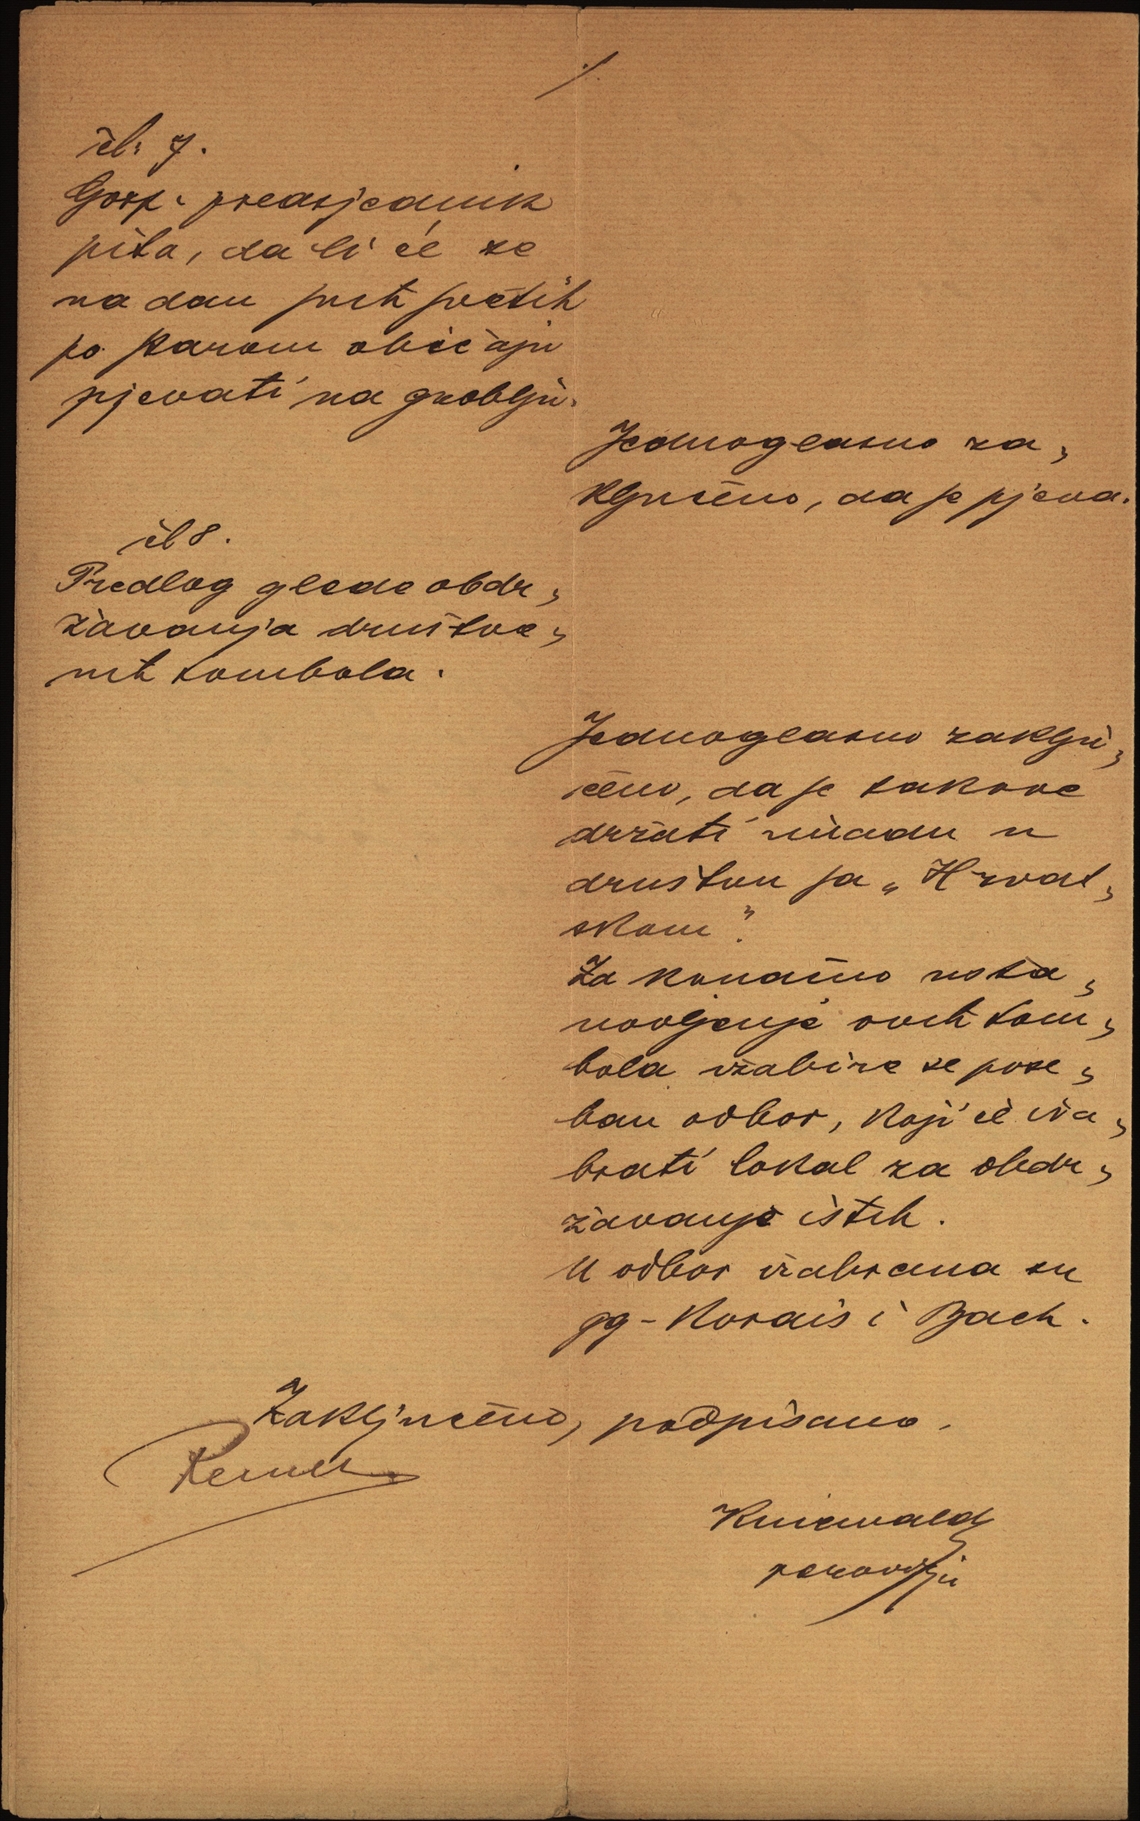 čl. 7.
Gosp. predsjednik
pita, da li će se
na dan svih svetih
po starom običaju
pjevati na groblju.
Jednoglasno za„
ključeno, da se pjeva.
čl 8.
Predlog glede obdr„
žavanja društve„
nih tombola.
Jednoglasno zaklju„
čeno, da se takove
držati imadu u
društvu sa „Hrvat„
skom".
Za konačno usta„
novljenje ovih tom„
bola izabire se pose„
ban odbor, koji će iza„
brati lokal za obdr„
žavanje istih.
U odbor izabrana su
gg - Korais i Bach.
Zaključeno, podpisano.
Kniewald
perovodja